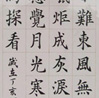 難東風無
炬成灰淚
應覺月光寒
探看
歲在丁亥